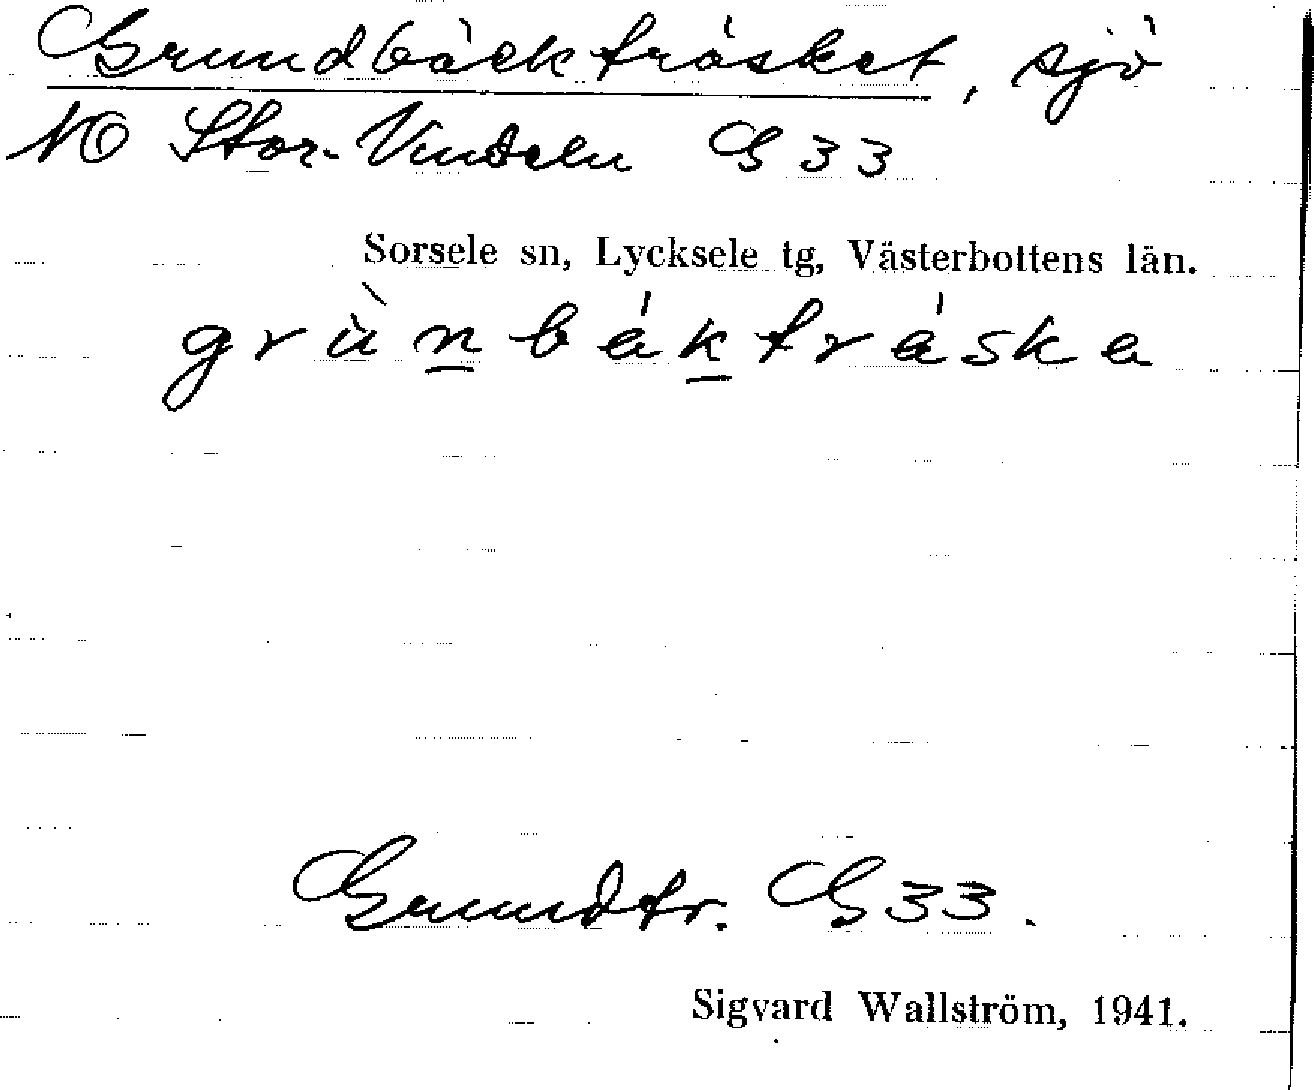 Grundbäckträsket, sjö
NO Stor-Vindeln G 33
Sorsele sn, Lycksele tg, Västerbottens län.
grùnbáktráska
Grundtr. G 33.
Sigvard Wallström, 1941.